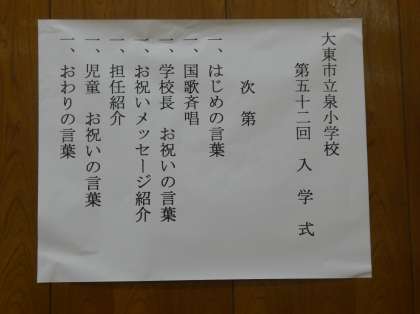 大東市立泉小学校
第五十二回　入学式
次第
一、はじめの言葉
一、国歌斉唱
一、学校長　お祝いの言葉
一、お祝いメッセージ紹介
一、担任紹介
一、児童　お祝いの言葉
一、おわりの言葉